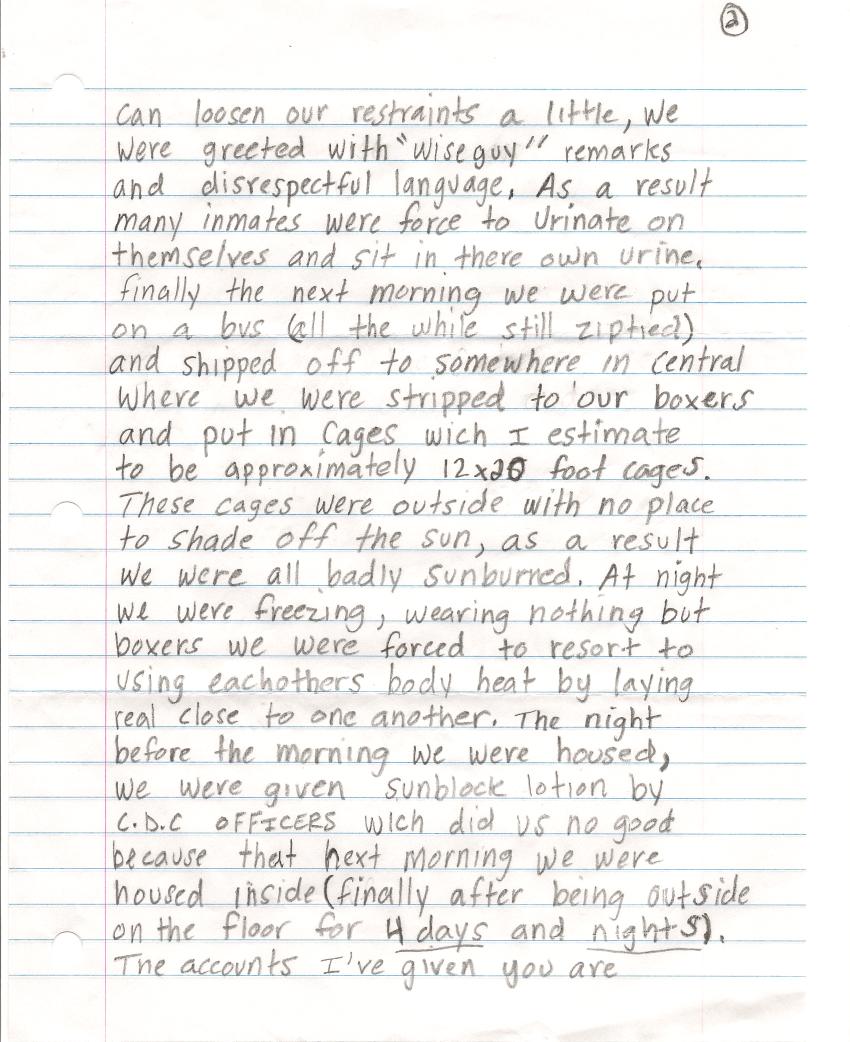 2
can loosen our restraints a little, we
were greeted with "wise guy" remarks
and disrespectful language. As a result
many inmates were force to Urinate on
themselves and sit in there own urine.
finally the next morning we were put
on a bus (all the while still ziptied)
and shipped off to somewhere in central
where we were stripped to our boxers
and put in Cages wich I estimate
to be approximately 12x20 foot cages.
These cages were outside with no place
to shade off the sun, as a result
we were all badly sunburned. At night
we were freezing, wearing nothing but
boxers we were forced to resort to
using eachothers body heat by laying
real close to one another. The night
before the morning we were housed,
we were given sunblock lotion by
C.D.C OFFICERS wich did us no good
because that next morning we were
housed inside (finally after being outside
on the floor for 4 days and nights).
The accounts I've given you are